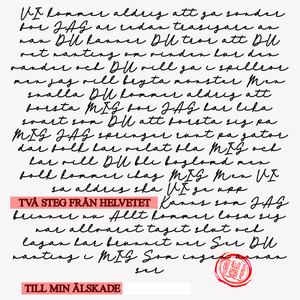 VI kommer aldrig att gå sönder
för JAG är redan trasigare än
när DU känner DU tror att DU
vet nånting om vinden hur den
vänder och DU vill gå i spillror
men jag vill bryta mönster Men
snälla DU kommer aldrig att
borsta MIG för JAG har lika
svårt som DU att borsta sig på
MIG JAG springer runt på gator
där folk har velat bla MIG och
här vill DU bli boglömd men
folk kommer ihåg MIG Men VI
sa aldrig ska VI ge upp
TVÅ STEG FRÅN HELVETET Känns som JAG
brinner nu Allt kommer lösa sig
när allvaret tagit slut och
lågan har brunnit ner Ser DU
nånting i MIG Som ingen annan
ser
TILL MIN ÄLSKADE